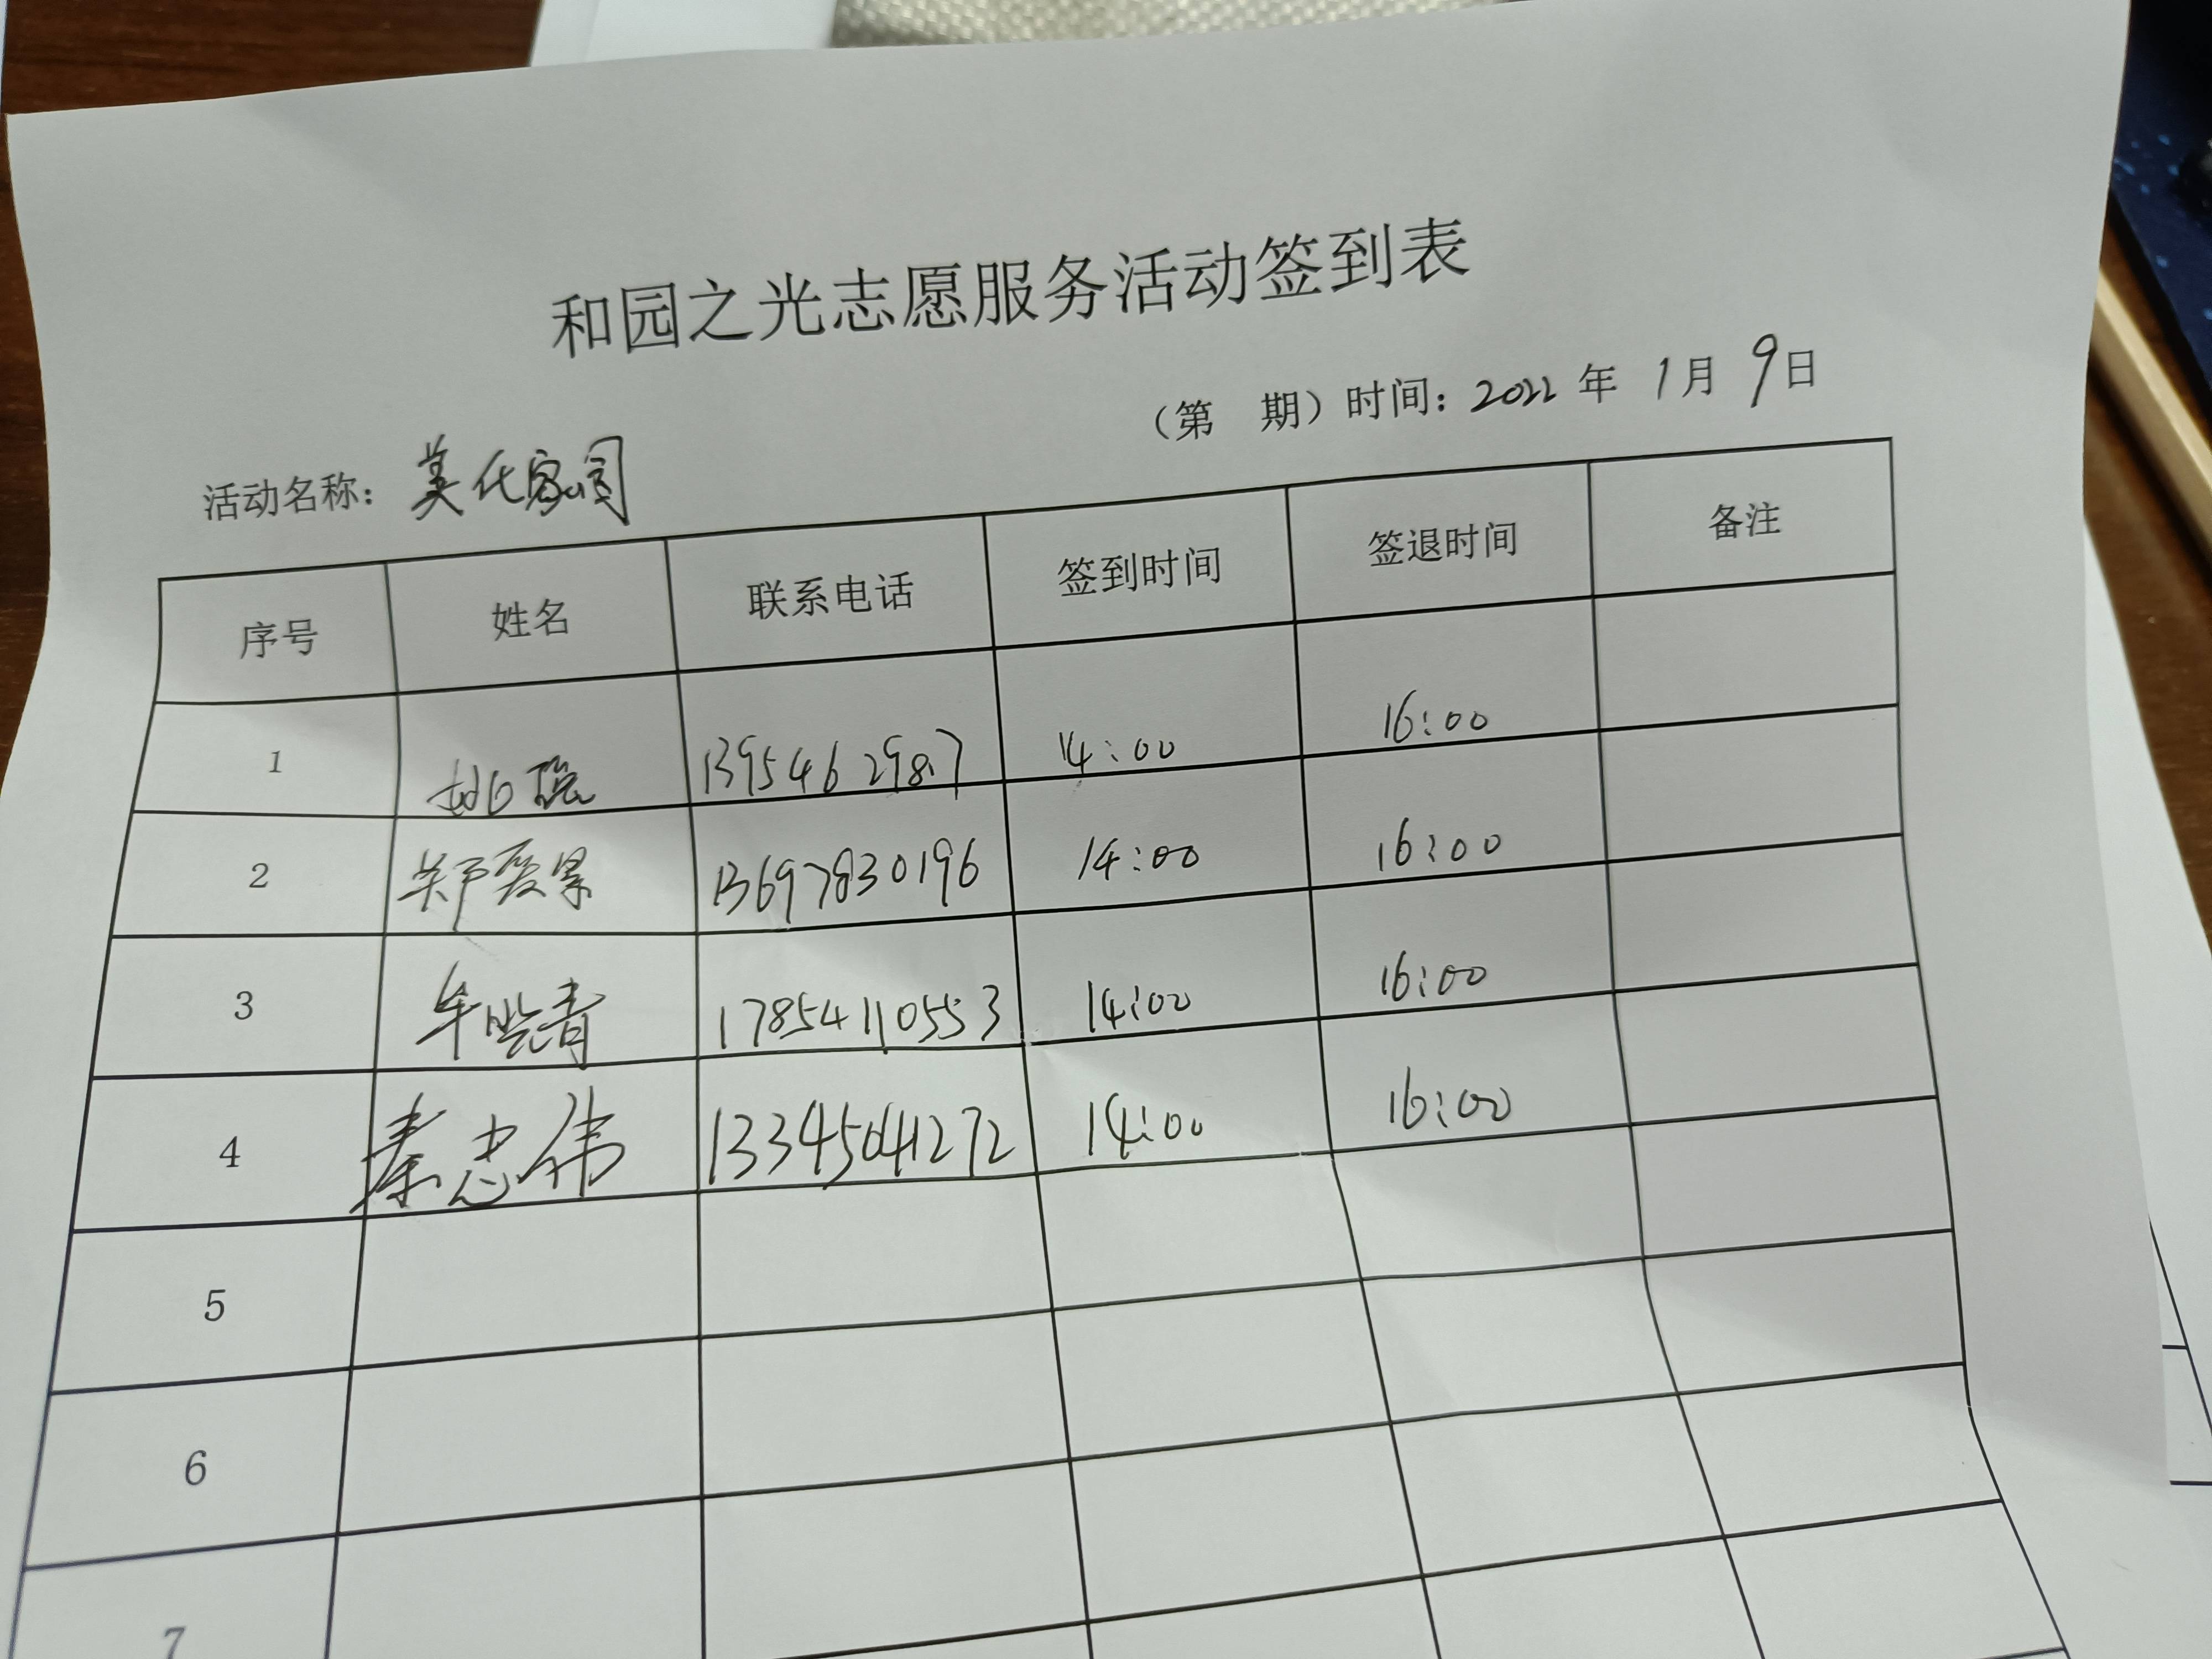 和园之光志愿服务活动签到表
（第 期）时间：2022 年 1 月 9 日
活动名称：美化家园
序号 姓名 联系电话 签到时间 签退时间 备注
1 1395462987 14:00 16:00
2 13697830196 14:00 16:00
3 牟晓青 17854110553 14:00 16:00
4 秦志伟 13345041272 14:00 16:00
5
6
7